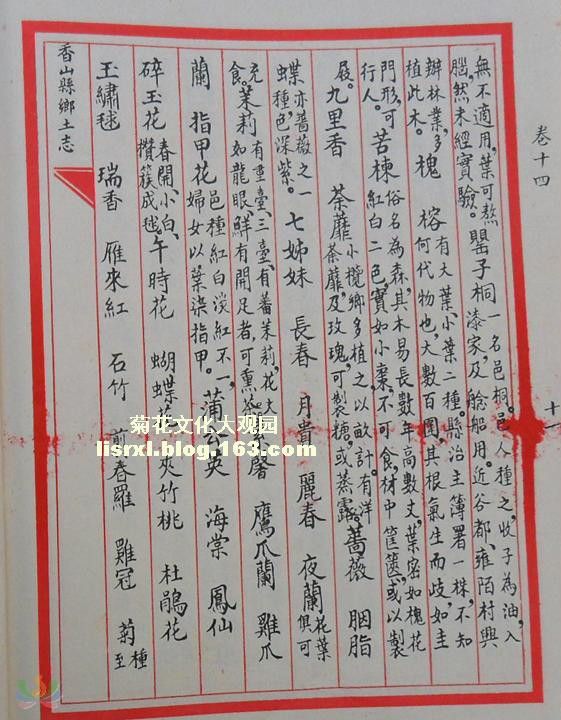 卷十四
十一
無不適用,葉可熬腦,然未經實驗。罌子桐一名邑桐。邑人種之,收子為油,入漆家,及艌船用。近谷都、雍陌村興
辦林業,多植此木。槐 榕有大葉、小葉二種。縣治主簿署一株,不知何代物也,大數百圍,其根氣生而歧,如圭
門形,可行人。苦楝俗名為森,其木易長,數年高數丈,葉密如槐,花紅白二色,實如小棗,不可食,材中筐篋,或以製
屐。九里香 荼蘼小欖鄉多植之,以畝計。有洋荼蘼,及玫瑰,可製糖,或蒸露。薔薇 胭脂
蝶亦薔薇之一種,色深紫。七姊妹 長春 月貴 麗春 夜蘭花葉俱可
充食。茉莉有重臺、三臺、有蕃茉莉,花大如龍眼,鮮有開足者,可熏 馨 鷹爪蘭 雞爪
蘭 指甲花邑種紅白淡紅不一,婦女以葉染指甲。蒲公英 海棠 鳳仙
碎玉花春開小白,攢簇成毬。午時花 蝴蝶 夾竹桃 杜鵑花
玉繡毬 瑞香 雁來紅 石竹 剪春羅 雞冠 菊種至
香山縣鄉土志
菊花文化大观园
lisrxl.blog.163.com